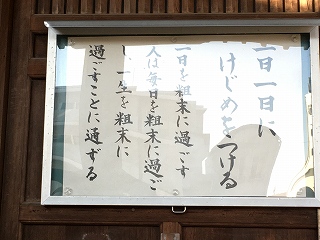 一日一日に
けじめをつける
一日を粗末に過ごす
人は毎日を粗末に過ご
し、一生を粗末に
過ごすことに通ずる